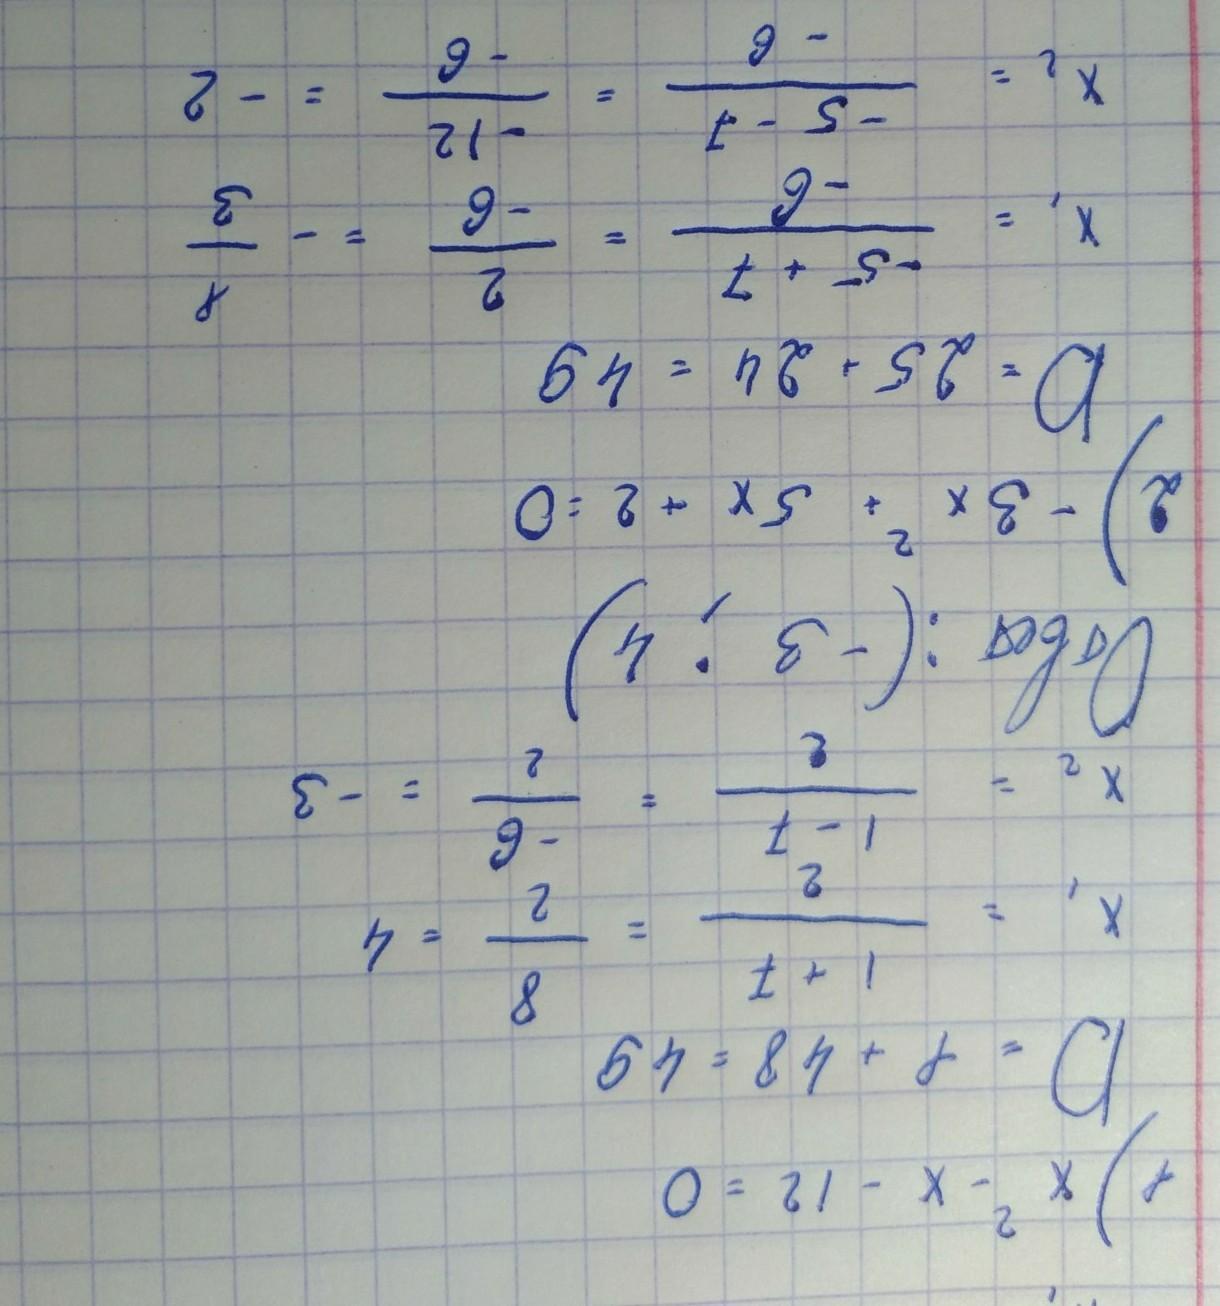 1) x² - x - 12 = 0
D = 1 + 48 = 49
x₁ = (1 + 7)/2 = 8/2 = 4
x₂ = (1 - 7)/2 = -6/2 = -3
Ответ: (-3 ; 4)
2) -3x² + 5x + 2 = 0
D = 25 + 24 = 49
x₁ = (-5 + 7)/-6 = 2/-6 = - 1/3
x₂ = (-5 - 7)/-6 = -12/-6 = -2